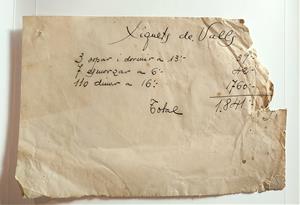 Xiquets de Valls
3 sopar i dormir a 13'- 39'-
7 esmorzar a 6'- 42'-
110 dinar a 16'- 1760'-
Total 1.841'-